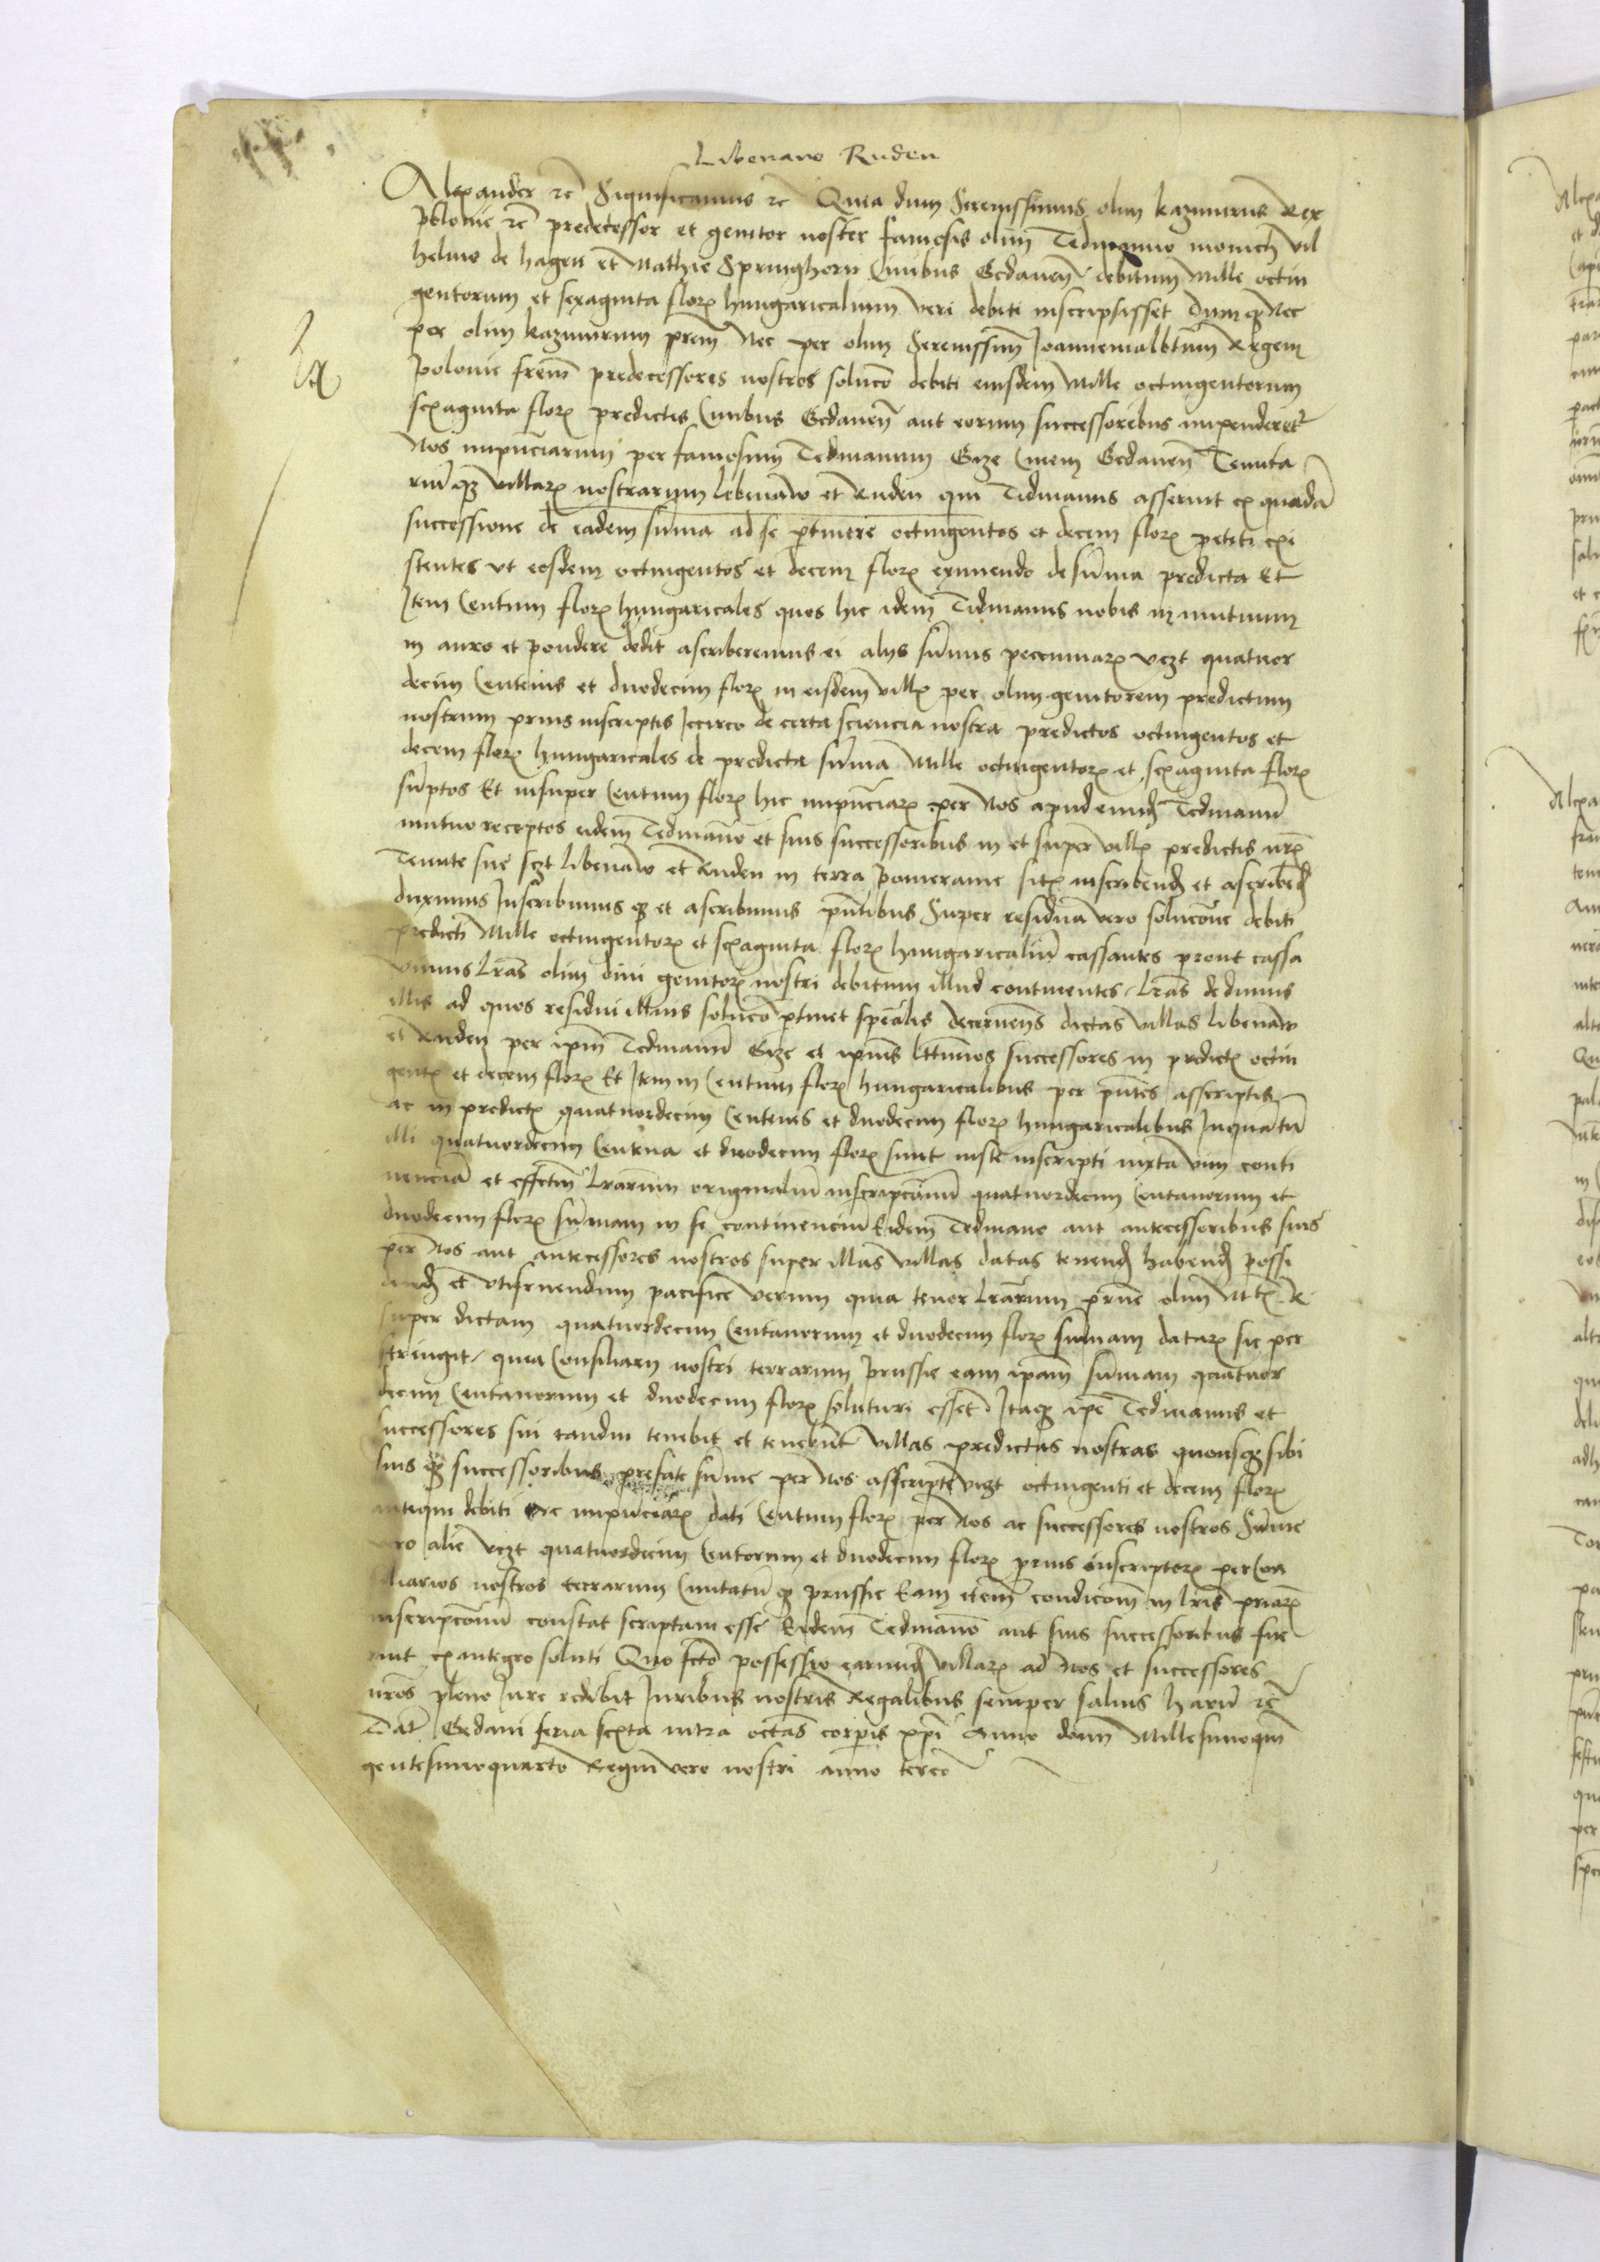 Libenawo Ruden
Alexander rc Significamus rc Quia dum Serenissimus olim kazimirus Rex
Polonie rc predecessor et genitor noster famosis olim Tedmanno monich vil
helmo de hagen et Mathie Springhorn Civibus Gedanen debitum Mille octin
gentorum et sexaginta florꝝ hungaricalium veri debiti inscripsisset dumqꝫ Nec
per olim kazimirum prem̄ Nec per olim Serenissim̄ Joannemalbtum Regem
Polonie frem̄ predecessores nostros soluco debiti eiusdem Mille octingentorum
sexaginta florꝝ predictis Civibus Gedanen̄ aut eorum successoribus impenderetr
Nos impnciarum per famosum Tedmannum Gize Civem Gedanen̄ Tenuta
riū qꝫ villarꝝ nostrarum Libenaw et Ruden qui Tidmannus asseruit ex quadā
successione de eadem sūma ad se ptinere octingentos et decem florꝝ petiti exi
stentes vt eosdem octingentos et decem florꝝ eximendo de sūma predicta Et
Item Centum florꝝ hungaricales quos hic idem Tidmannus nobis in mutuum
in auro et pondere dedit ascriberemus ei alijs sūmis pecuniarꝝ vczt quatuor
decim Centenis et duodecim florꝝ in eisdem villꝭ per olim genitorem predictum
nostrum prius inscriptis Iccirco de certa sciencia nostra predictos octingentos et
decem florꝝ hungaricales de predicta sūma Mille octingentorꝝ et sexaginta florꝝ
sūptos Et insuper Centum florꝝ hic impnciarꝝ per Nos apud eundꝫ Tedmannū
mutuo receptos eidem Tedmanno et suis successoribus in et super villꝭ predictis nrꝭ
Tenute sue sczt Libenaw et Ruden in terra Pomeranie sitꝭ inscribendꝫ et ascribēdꝫ
duximus Inscribimus qꝫ et ascribimus pn̄tibus Super residua vero solucōne debiti
predicti Mille octingentorꝝ et sexaginta florꝝ hungaricaliū cassantes prout cassa
vimus lrās olim dini genitorꝭ nostri debitum illud continentes lrās dedimus
illis ad quos residui illius soluco ptinet spēalis decernen̄s dictas villas libenaw
et Ruden per ipm̄ Tedmannū Gize et ipius lttimos successores in predictꝭ octin
gentꝭ et decem florꝝ Et Item in Centum florꝝ hungaricalibus per pn̄tes asscriptis
ac in predictꝭ quatuordecim Centenis et duodecim florꝝ hungaricalibus Inquantū
illi quatuordecim Centena et duodecim florꝝ sunt iuste inscripti iuxta vim conti
nenciā et effectm̄ lrarum originaliū inscripcionū quatuordecim Centenorum et
duodecim florꝝ sūmam in se continenciū Eidem Tedmano aut antecessoribus suis
per Nos aut antecessores nostros super illas villas datas tenendꝫ habendꝫ possi
dendꝫ et vtifruendum pacifice verum quia tenor lrārum prne olim Mtꝭ R
super dictam quatuordecim Centenorum et duodecim florꝝ sūmam datarꝝ sic per
stringit quia Consiliarij nostri terrarum Prussie eam ipam̄ sūmam quatuor
decim Centenorum et duodecim florꝝ soluturi essēt Itaqꝫ ipe Tedmanus et
successores sui tandiu tenebit et tenebūt villas predictas nostras quousqꝫ sibi
suis qꝫ successoribus prefate sūme per Nos asscripte vizt octingenti et decem florꝝ
antiqui debiti Ac impnciarꝝ dati Centum florꝝ per Nos ac successores nostros Sūme
vero alie vczt quatuordecim Centorum et duodecim florꝝ prius inscriptorꝝ per Con
siliarios nostros terrarum Civitatū qꝫ prussie Eam etem̄ condicom̄ in lris priarꝝ
inscripcōnū constat scriptam esse Eidem Tedmanno aut suis successoribus fue
rint exintegro soluti Quo fcto possessio earundꝫ villarꝝ ad Nos et successores
nros pleno Iure redibit Iuribus nostris Regalibus semper saluis harū rc
Dat Gedani feria sexta intra octas corpis xpi Anno domi Millesimoqui
gentesimoquarto Regni vero nostri anno tercio